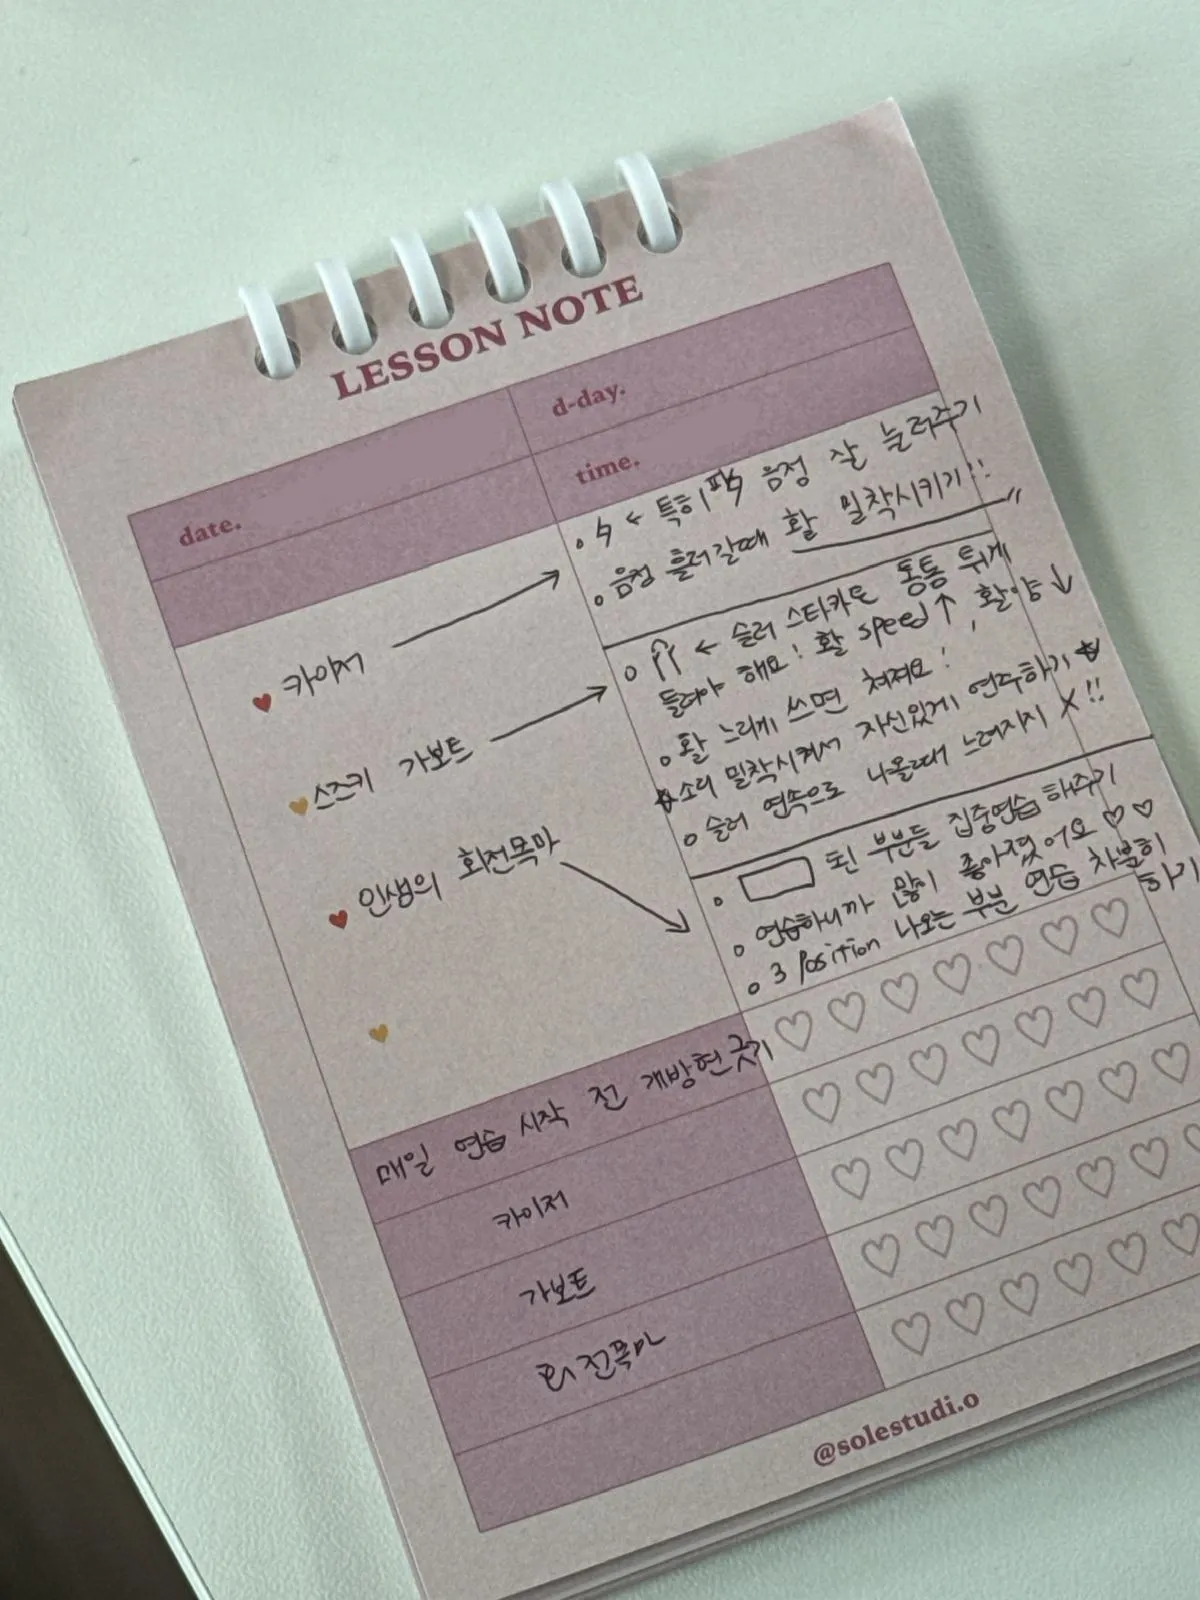 LESSON NOTE
d-day.
date.
time.
카이저
스즈키 가보트
인생의 회전목마
← 특히 음정 잘 눌러주기
음정 흘러갈때 활 밀착시키기!!
← 슬러 스타카토 통통 튀게
들려야 해요! 활 speed↑, 활양↓
활 느리게 쓰면 쳐져요!
소리 밀착시켜서 자신있게 연주하기
슬러 연속으로 나올때 느려지지 X!!
된 부분들 집중연습 해주기
연습하니까 많이 좋아졌어요♡♡
3 Position 나오는 부분 연습 차분히
하기
매일 연습 시작 전 개방현 긋기
카이저
가보트
회전목마
@solestudi.o